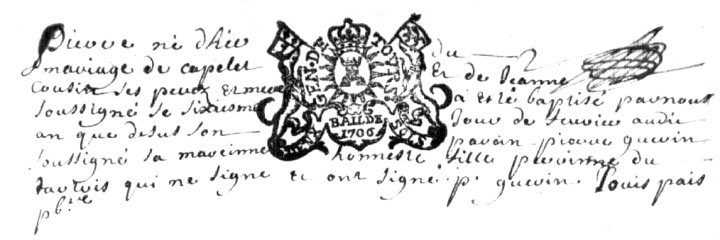 Pierre né d'hier du
mariage de capelet Et de Jeanne
Cousin ses peres Et mere a esté baptisé par nous
soussigné le sixiesme Jour de feuvrier audit
an que desus son parain pierre guerin
soussigné sa mareinne honneste fille perrinne du
tartois qui ne signe et ont signé p. guerin. Louis pais
pbtre
GEN DE TOVRS
BAIL DE
1706